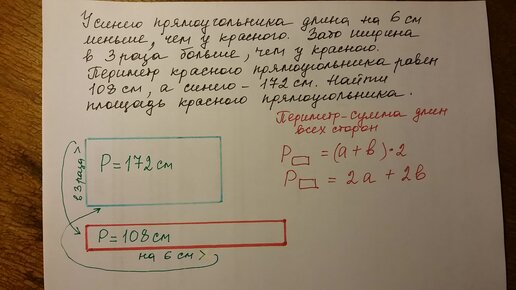 У синего прямоугольника длина на 6 см
меньше, чем у красного. Зато ширина
в 3 раза больше, чем у красного.
Периметр красного прямоугольника равен
108 см, а синего - 172 см. Найти
площадь красного прямоугольника.
Периметр-сумма длин
всех сторон
P▭ = (a + b) · 2
P▭ = 2a + 2b
в 3 раза >
P = 172 см
P = 108 см
на 6 см >